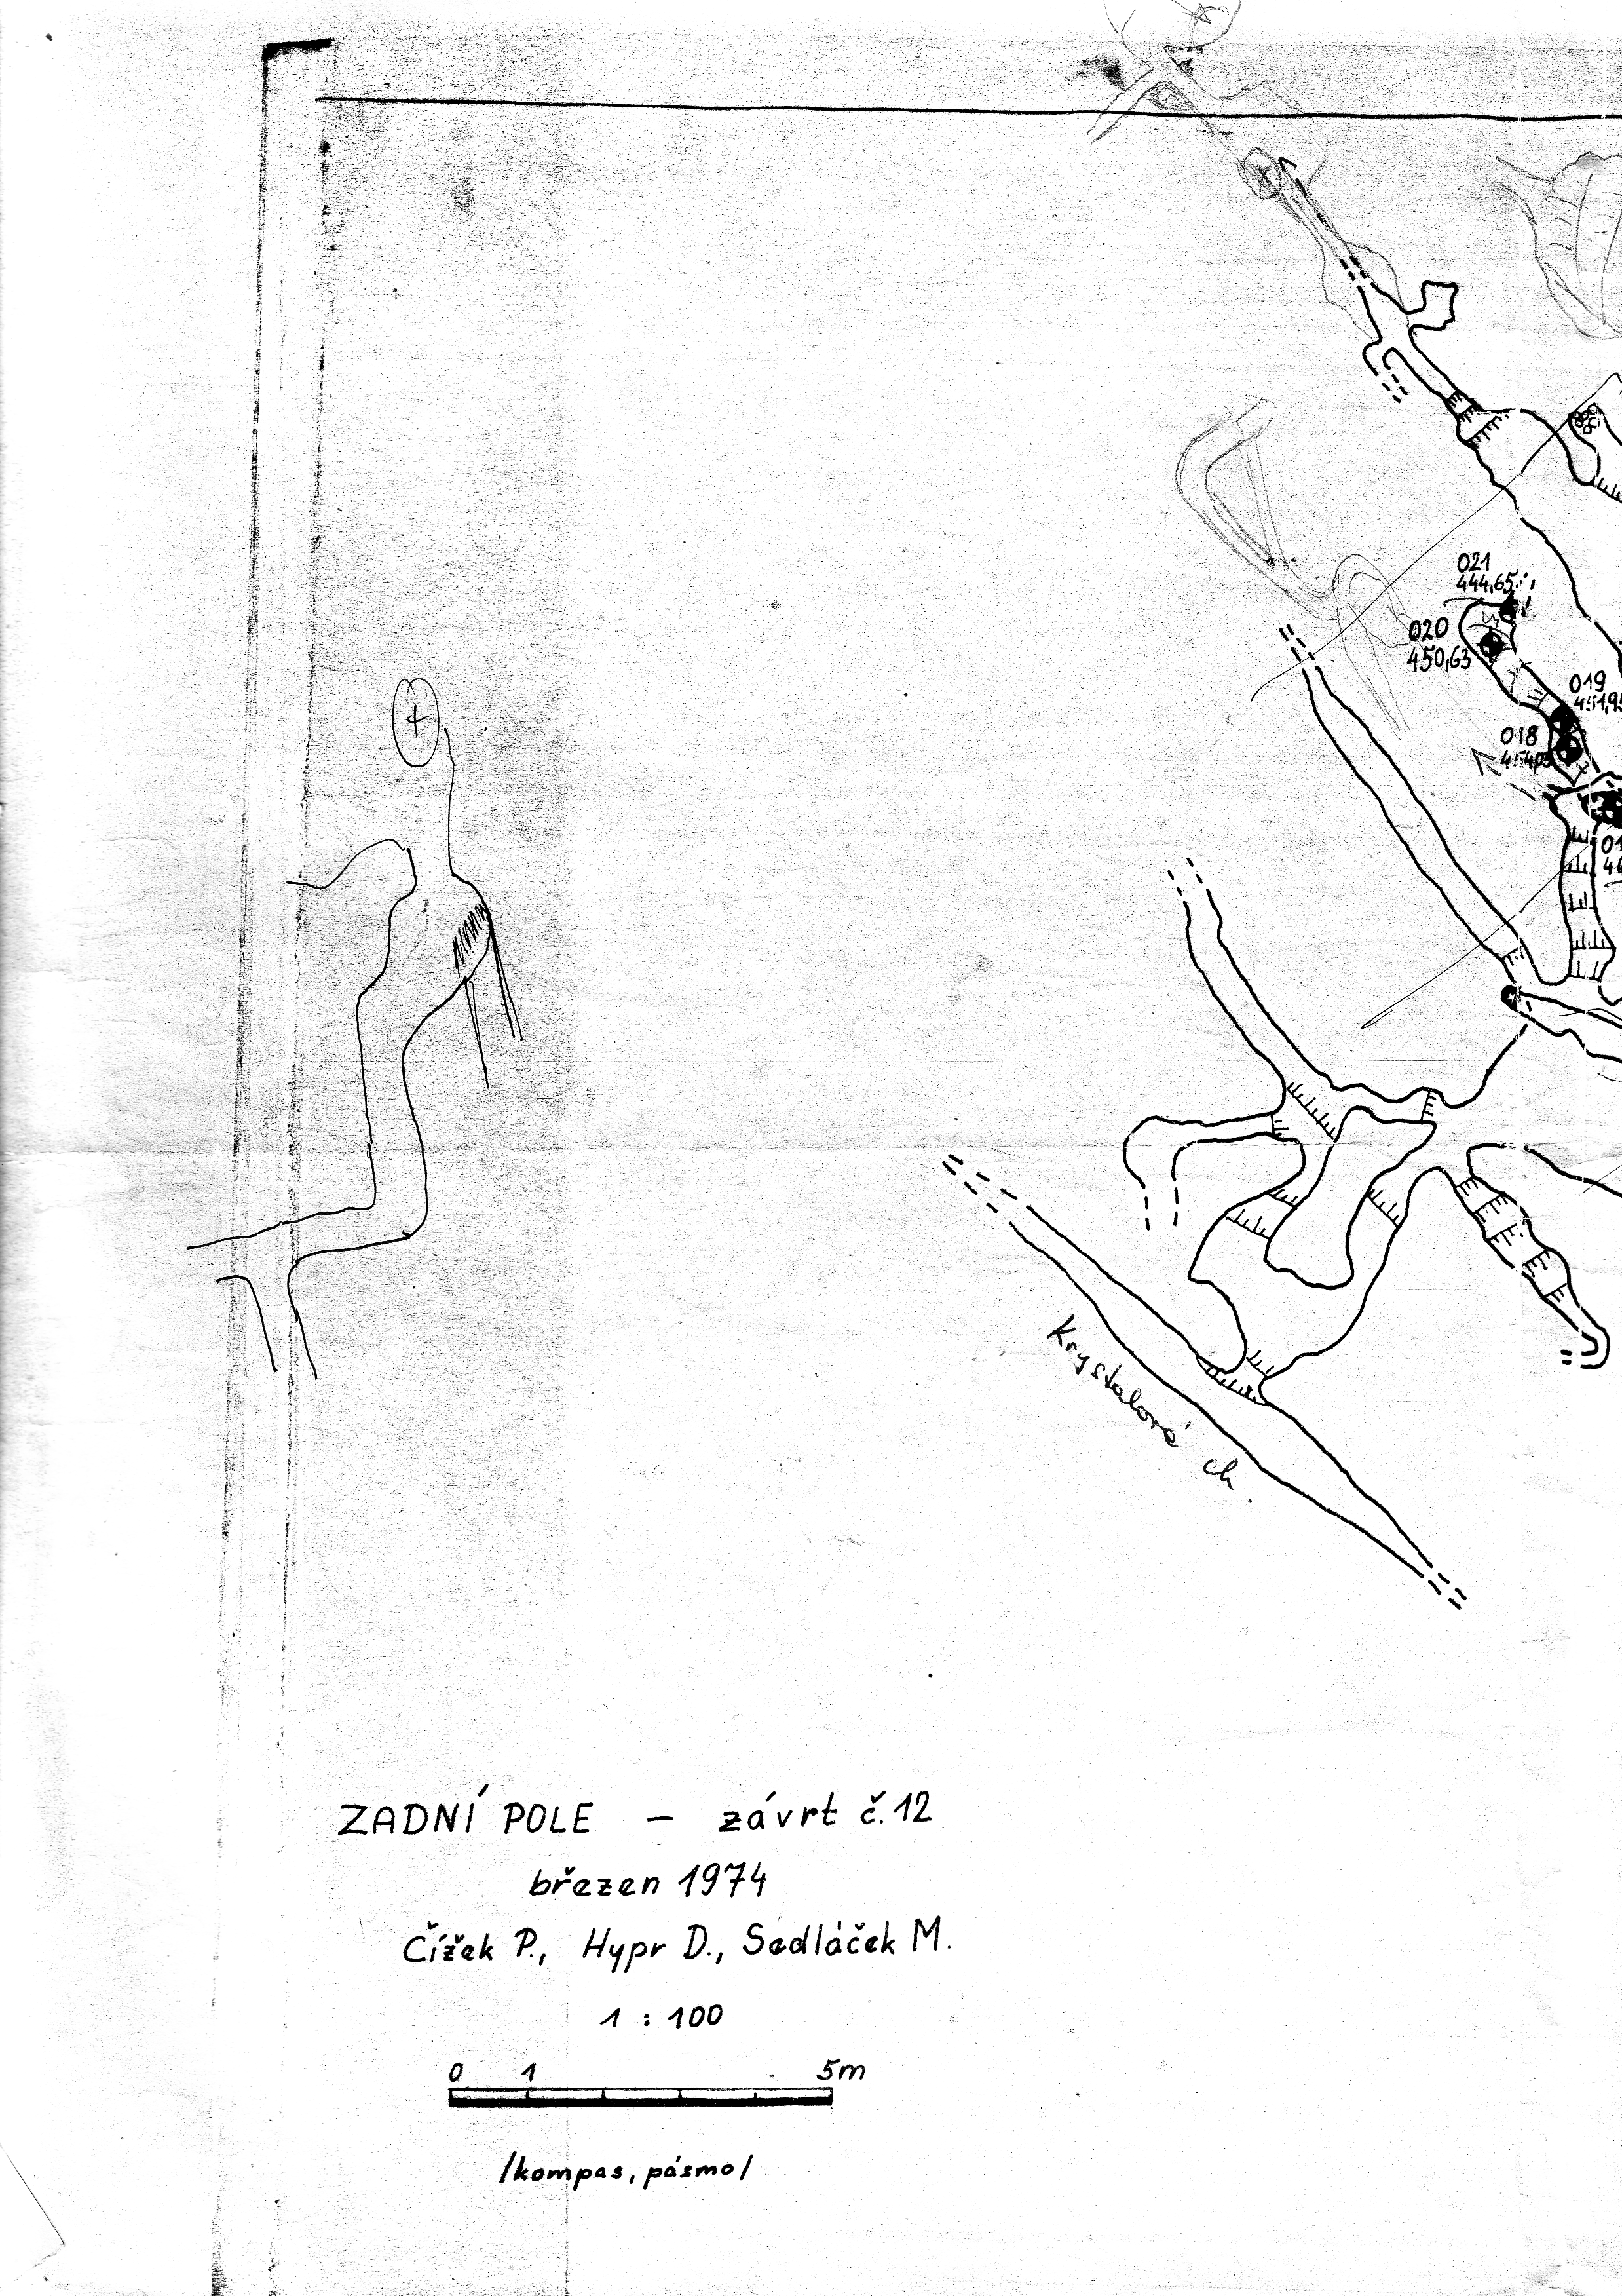 021
444,65
020
450,63
019
018
Krystalová ch.
ZADNÍ POLE — závrt č.12
březen 1974
Čížek P., Hypr D., Sedláček M.
1 : 100
0 1 5m
/kompas, pásmo/